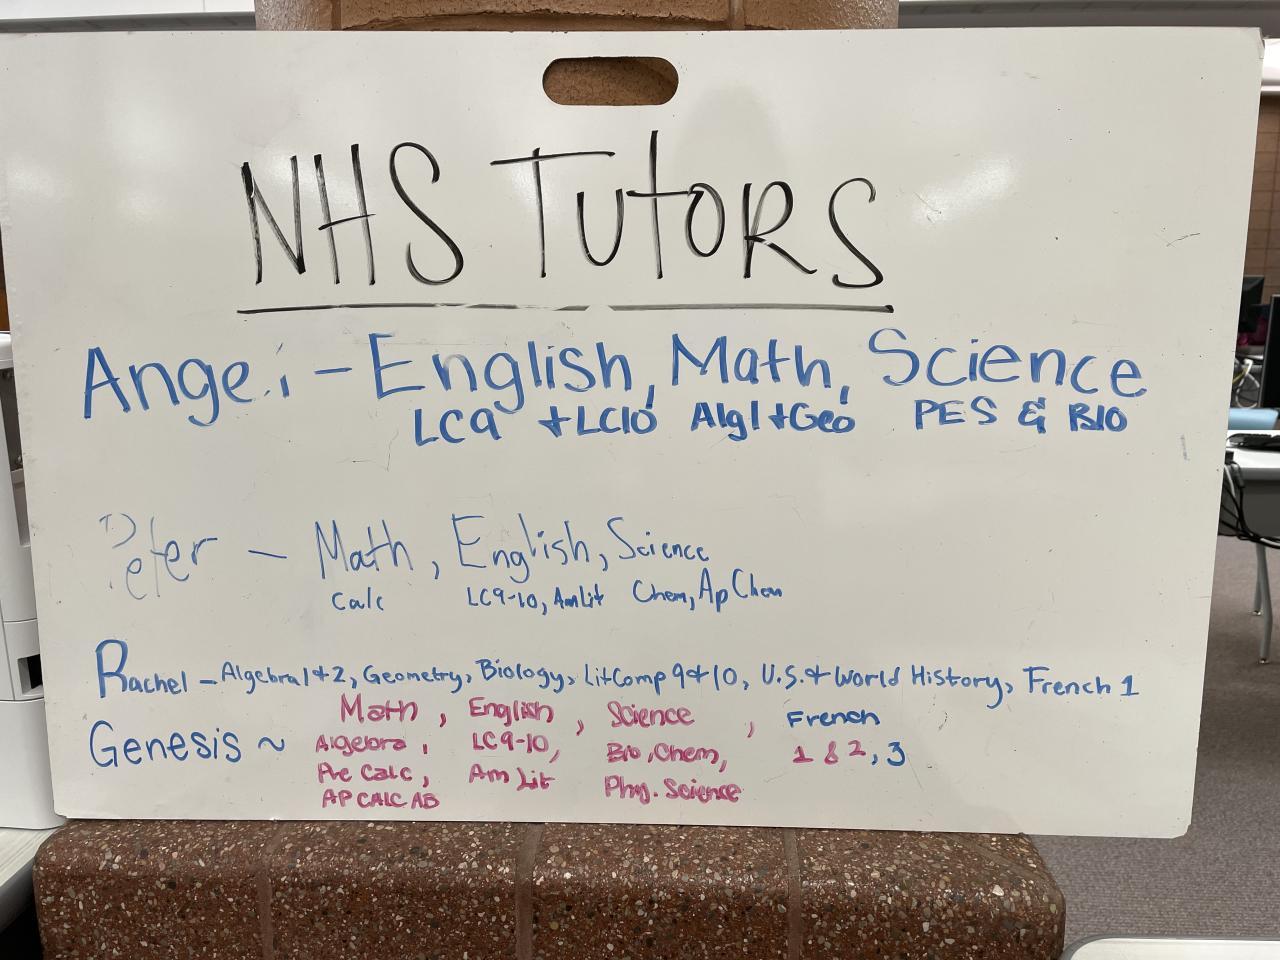 NHS TUTORS
Ange.i - English, Math, Science
LC9 + LC10 Alg1 + Geo PES & BIO
Peter - Math, English, Science
Calc LC9-10, AmLit Chem, Ap Chem
Rachel - Algebra 1 + 2, Geometry, Biology, LitComp 9 + 10, U.S. + World History, French 1
Math, English, Science, French
Genesis ~ Algebra, LC9-10, Bio, Chem, 1 & 2, 3
Pre Calc, Am Lit Phy. Science
AP CALC AB